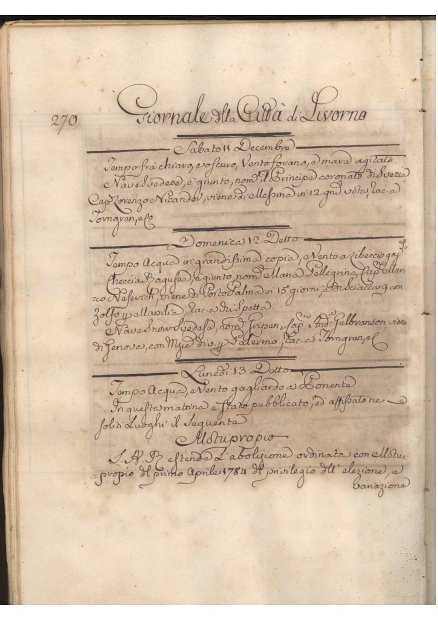 270
Giornale della Città di Livorno
Sabato 11 Decembre
Tempo frà chiaro, e oscuro, Vento forano, e mare agitato
Nave Svedese, è giunto, nom.º il Principe coronato di Svezia
Cap. Lorenzo Nicander, viene di Messina in 12 gni vóto, rac. a
Torngren, e Co.
Domenica 12 Detto
Tempo Acqua in grandissima copia, e Vento a Libeccio
Checcia Ragusea, è giunto, nom.ª Maria Pellegrina, Cap.
viene di Porto Palma in 15 giorni con
Zolfo, rac. a du Spetta
Nave Snow Svedese, nom.º Gripen, Cap. And. Gulbranson, vien
di Genova, con Mje di p. Palermo, rac. a Torngren, e C.
Lunedi 13 Detto
Tempo Acqua, e Vento gagliardo a Ponente
In questa mattina è stato pubblicato, ed affissato ne
soliti Luoghi il Seguente
Motupropio
S. A. R. estende L'abolizione ordinata con Motu-
propio del primo Aprile 1784 del privilegio dell' elezione, e